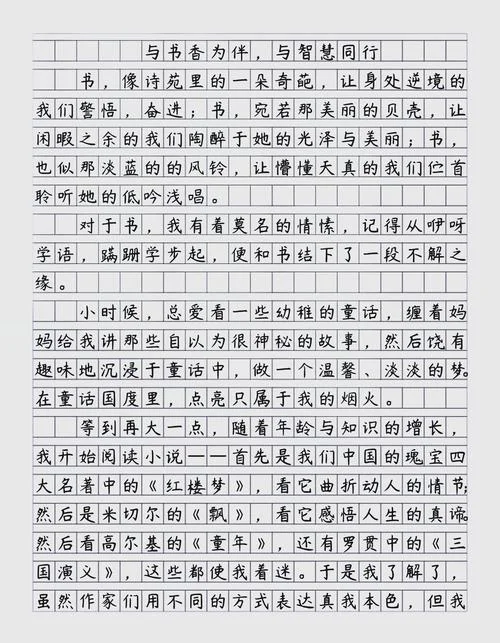 与书香为伴，与智慧同行
书，像诗苑里的一朵奇葩，让身处逆境的
我们警悟，奋进；书，宛若那美丽的贝壳，让
闲暇之余的我们陶醉于她的光泽与美丽；书，
也似那淡蓝的的风铃，让懵懂天真的我们伫首
聆听她的低吟浅唱。
对于书，我有着莫名的情愫，记得从咿呀
学语，蹒跚学步起，便和书结下了一段不解之
缘。
小时候，总爱看一些幼稚的童话，缠着妈
妈给我讲那些自以为很神秘的故事，然后饶有
趣味地沉浸于童话中，做一个温馨、淡淡的梦。
在童话国度里，点亮只属于我的烟火。
等到再大一点，随着年龄与知识的增长，
我开始阅读小说——首先是我们中国的瑰宝四
大名著中的《红楼梦》，看它曲折动人的情节；
然后是米切尔的《飘》，看它感悟人生的真谛。
然后看高尔基的《童年》，还有罗贯中的《三
国演义》，这些都使我着迷。于是我了解了，
虽然作家们用不同的方式表达真我本色，但我